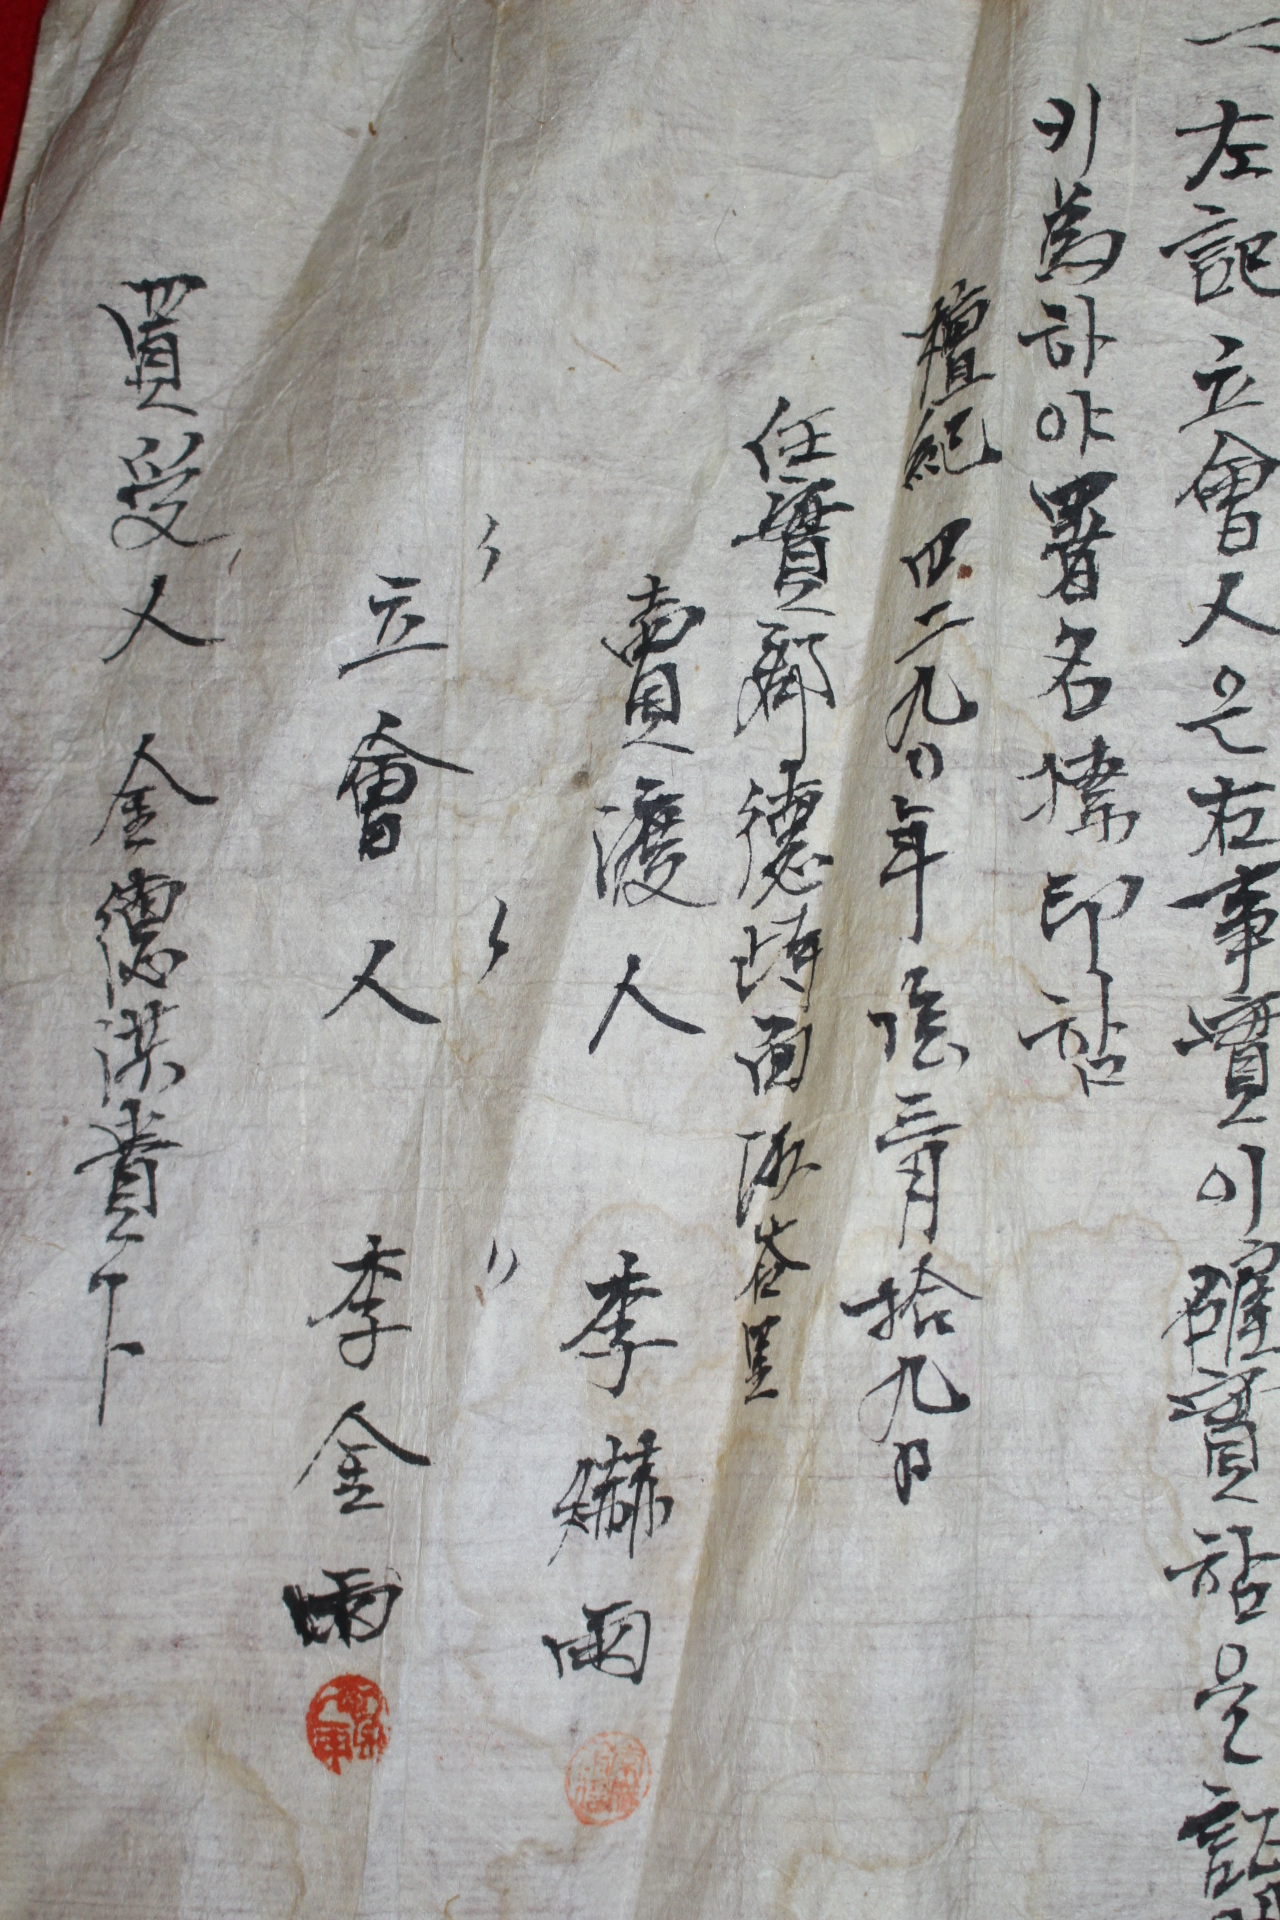 一 左記立會人은右事實이確實함을証明
키爲하야署名捺印함
檀紀四二九〇年陰三月拾九日
任實郡德峙面 里
賣渡人 李爀雨
〃 〃 〃
立會人 李金雨
買受人 金德洪貴下